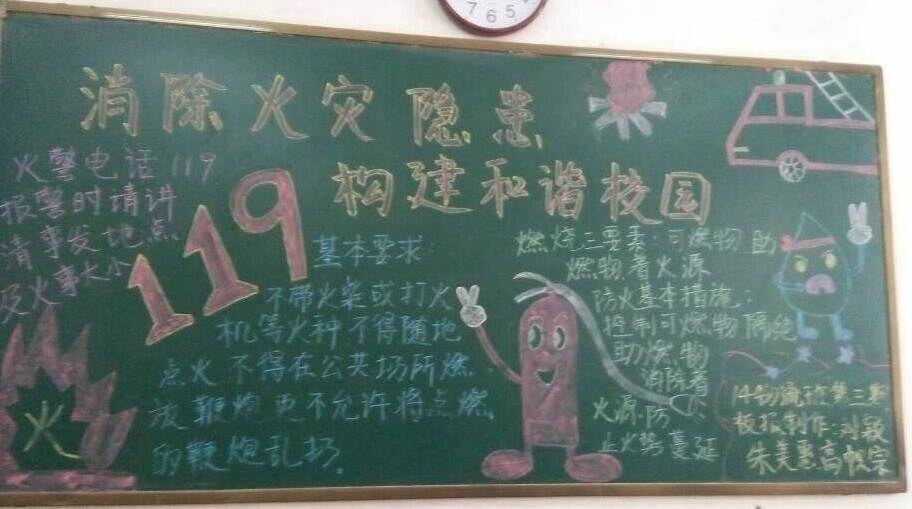 7 6 5
消除火灾隐患
构建和谐校园
火警电话119
报警时请讲
清事发地点
及火事大小
119
基本要求:
不带火柴或打火
机等火种不得随地
点火不得在公共场所燃
放鞭炮更不允许将点燃
的鞭炮乱扔.
燃烧三要素:可燃物 助
燃物着火源
防火基本措施:
控制可燃物隔绝
助燃物
消除着
火源.防
止火势蔓延
火
板报制作:刘毅